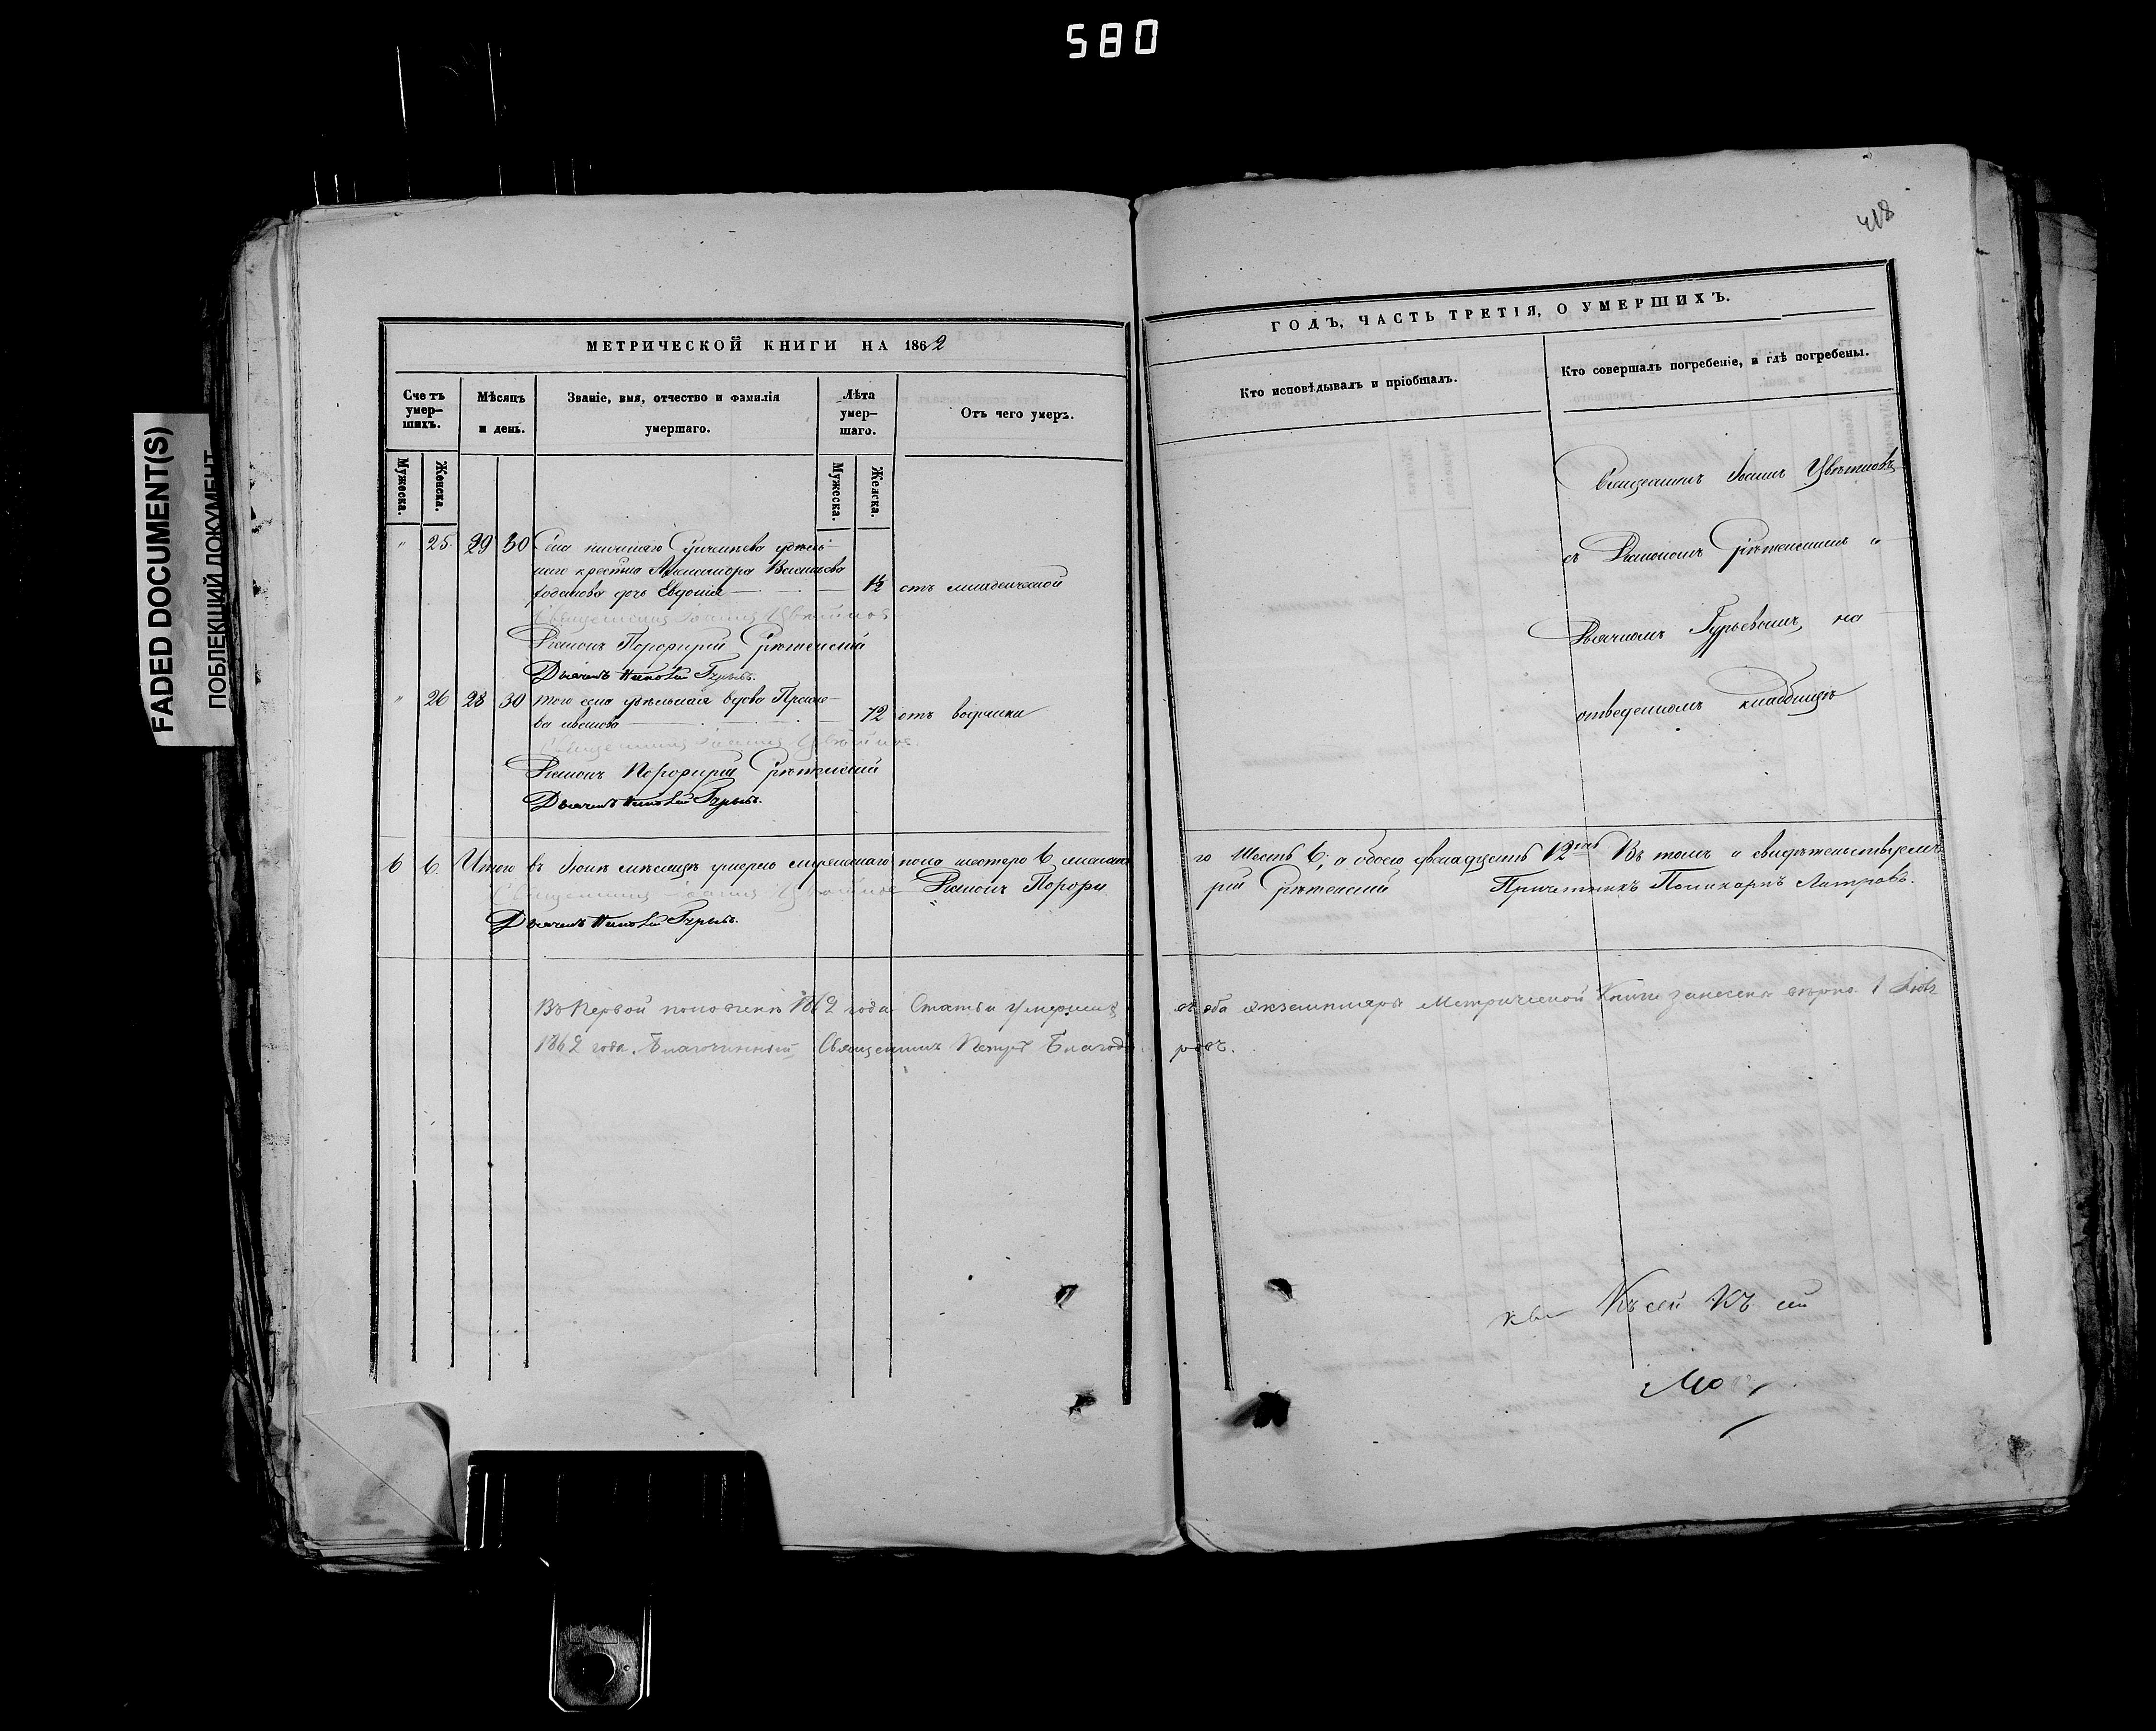 580
FADED DOCUMENT(S)
ПОБЛЕКШИЙ ДОКУМЕНТ
418
МЕТРИЧЕСКОЙ КНИГИ НА 1862
ГОДЪ, ЧАСТЬ ТРЕТІЯ, О УМЕРШИХЪ.
Счетъ умер-шихъ.
Мѣсяцъ и день.
Званіе, имя, отчество и фамилія умершаго.
Лѣта умер-шаго.
Отъ чего умеръ.
Кто исповѣдывалъ и пріобщалъ.
Кто совершалъ погребеніе, и гдѣ погребены.
Мужеска.
Женска.
Мужеска.
Женска.
" 25. 29 30 Села
наго крестна Александра Васильева
дочь Евдокія 1½ отъ младенческой
Священникъ Іоаннъ Цвѣтковъ
Діаконъ Порфирій Срѣтенскій
Дьячекъ Гурьевъ.
" 26 28 30 того села удѣльная вдова
72 отъ водянки
Священникъ Іоаннъ Цвѣтковъ
Діаконъ Порфирій Срѣтенскій
Дьячекъ Гурьевъ.
Священникъ Іоаннъ Цвѣтковъ
съ Діакономъ Срѣтенскимъ и
Дьячкомъ Гурьевымъ, на
отведенномъ кладбищѣ
6 6. Итого въ Іюнѣ мѣсяцѣ умерло мужескаго пола шестеро 6, женска
го Шесть 6; а обоего двенадцать 12ть Въ томъ и свидѣтельствуемъ
Священникъ Іоаннъ Цвѣтковъ Діаконъ Порфи
рій Срѣтенскій Причетникъ Поликарпъ
Дьячекъ Гурьевъ.
Въ первой половинѣ 1862 года Статьи умершихъ
въ оба экземпляра Метрической Книги занесены вѣрно. 1 Іюля
1862 года. Благочинный Священникъ Петръ Благодa
ровъ.
Къ сей Къ сей